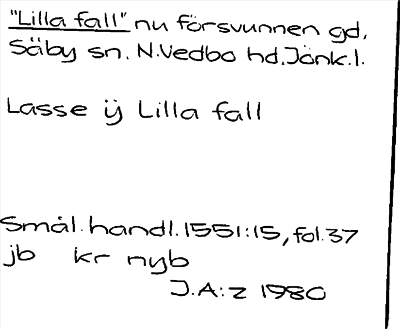 "Lilla fall" nu försvunnen gd,
Säby sn. N.Vedbo hd. Jönk.l.
Lasse ÿ Lilla fall
Smål.handl.1551:15, fol.37
jb kr nyb
J.A:z 1980